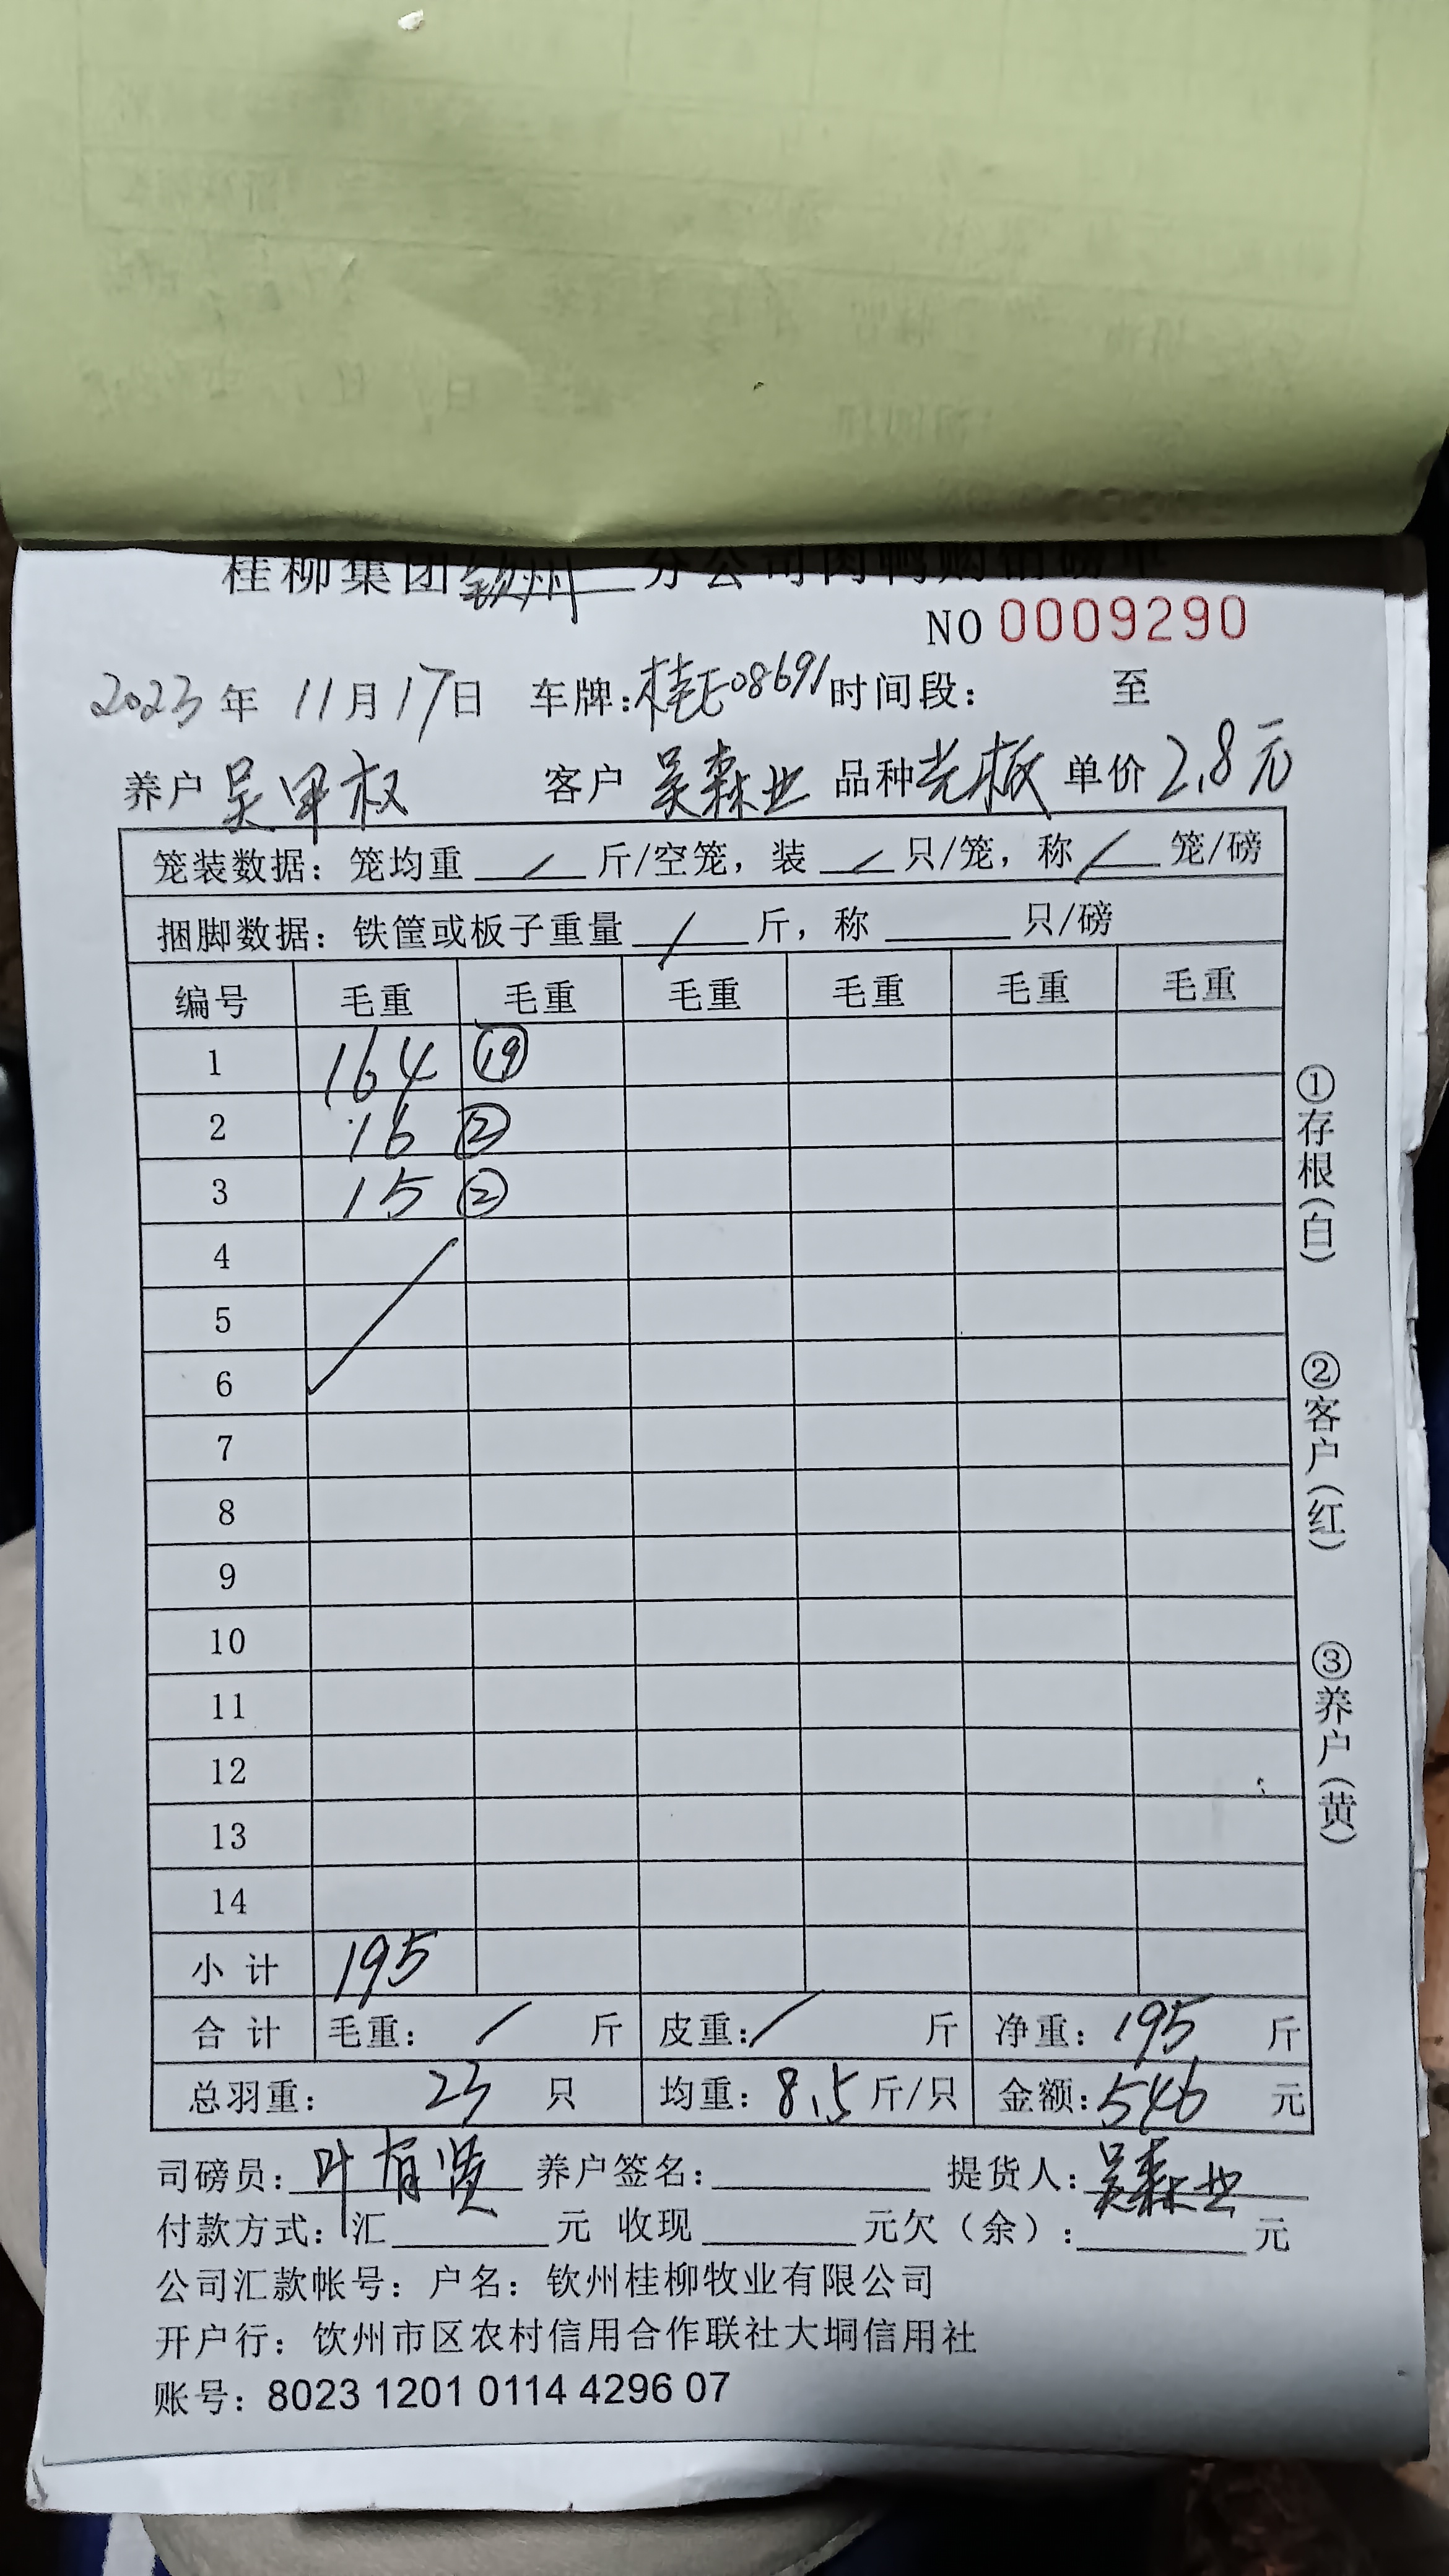 桂柳集团钦州分公司肉鸭购销磅单
NO 0009290
2023年 11月17日 车牌:桂E08691时间段: 至
养户 吴甲权 客户 吴森业 品种 光板 单价 2.8元
笼装数据: 笼均重 / 斤/空笼, 装 / 只/笼, 称 / 笼/磅
捆脚数据: 铁筐或板子重量 / 斤, 称 只/磅
编号 毛重 毛重 毛重 毛重 毛重 毛重
1 164 ⑲
2 16 ②
3 15 ②
4
5
6
7
8
9
10
11
12
13
14
小计 195
合计 毛重: / 斤 皮重: / 斤 净重: 195 斤
总羽重: 23 只 均重: 8.5 斤/只 金额: 546 元
司磅员: 叶有贤 养户签名: 提货人: 吴森业
付款方式: 汇 元 收现 元欠(余): 元
公司汇款帐号: 户名: 钦州桂柳牧业有限公司
开户行: 饮州市区农村信用合作联社大垌信用社
账号: 8023 1201 0114 4296 07
①存根(白)
②客户(红)
③养户(黄)